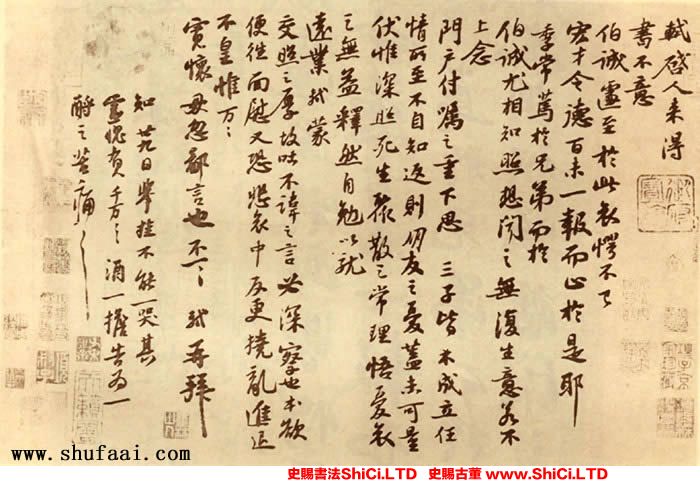 軾啓人来得
書不意
伯誠遽至於此哀愕不已
宏才令德百未一報而止於是耶
季常篤於兄弟而於
伯誠尤相知照想聞之無復生意若不
上念
門户付囑之重下思三子皆未成立任
情所至不自知返則朋友之憂蓋未可量
伏惟深照死生聚散之常理悟憂哀
之無益釋然自勉以就
遠業軾蒙
交照之厚故吐不諱之言必深察也本欲
便往面慰又恐悲哀中反更撓亂進退
不皇惟万万
寬懷毋忽鄙言也不一一軾再拜
知廿九日舉挂不能一哭其
靈愧負千万千万酒一擔告為一
酹之苦痛苦痛
www.shufaai.com
史賜書法ShiCi.LTD 史賜古董 www.ShiCi.LTD